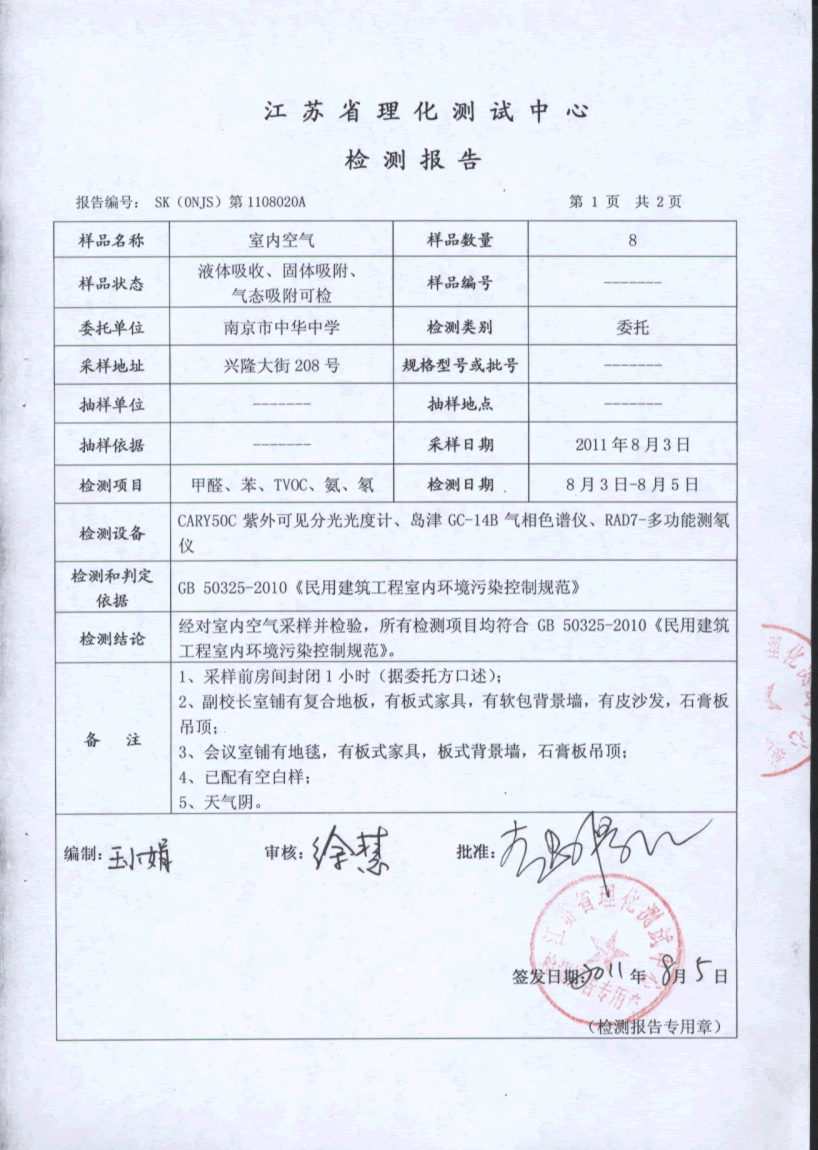 江苏省理化测试中心
检测报告
报告编号： SK（ONJS）第1108020A 第 1 页 共 2页
样品名称 室内空气 样品数量 8
样品状态 液体吸收、固体吸附、
气态吸附可检 样品编号 -------
委托单位 南京市中华中学 检测类别 委托
采样地址 兴隆大街 208 号 规格型号或批号 -------
抽样单位 ------- 抽样地点 -------
抽样依据 ------- 采样日期 2011 年 8 月 3 日
检测项目 甲醛、苯、TVOC、氨、氡 检测日期 8 月 3 日-8 月 5 日
检测设备 CARY50C 紫外可见分光光度计、岛津 GC-14B 气相色谱仪、RAD7-多功能测氡
仪
检测和判定
依据 GB 50325-2010《民用建筑工程室内环境污染控制规范》
检测结论 经对室内空气采样并检验，所有检测项目均符合 GB 50325-2010《民用建筑
工程室内环境污染控制规范》。
备 注 1、采样前房间封闭 1 小时（据委托方口述）；
2、副校长室铺有复合地板，有板式家具，有软包背景墙，有皮沙发，石膏板
吊顶；
3、会议室铺有地毯，有板式家具，板式背景墙，石膏板吊顶；
4、已配有空白样；
5、天气阴。
编制： 审核：徐慧 批准：
江苏省理化测试中心
签发日期：2011 年 8月 5 日
（检测报告专用章）